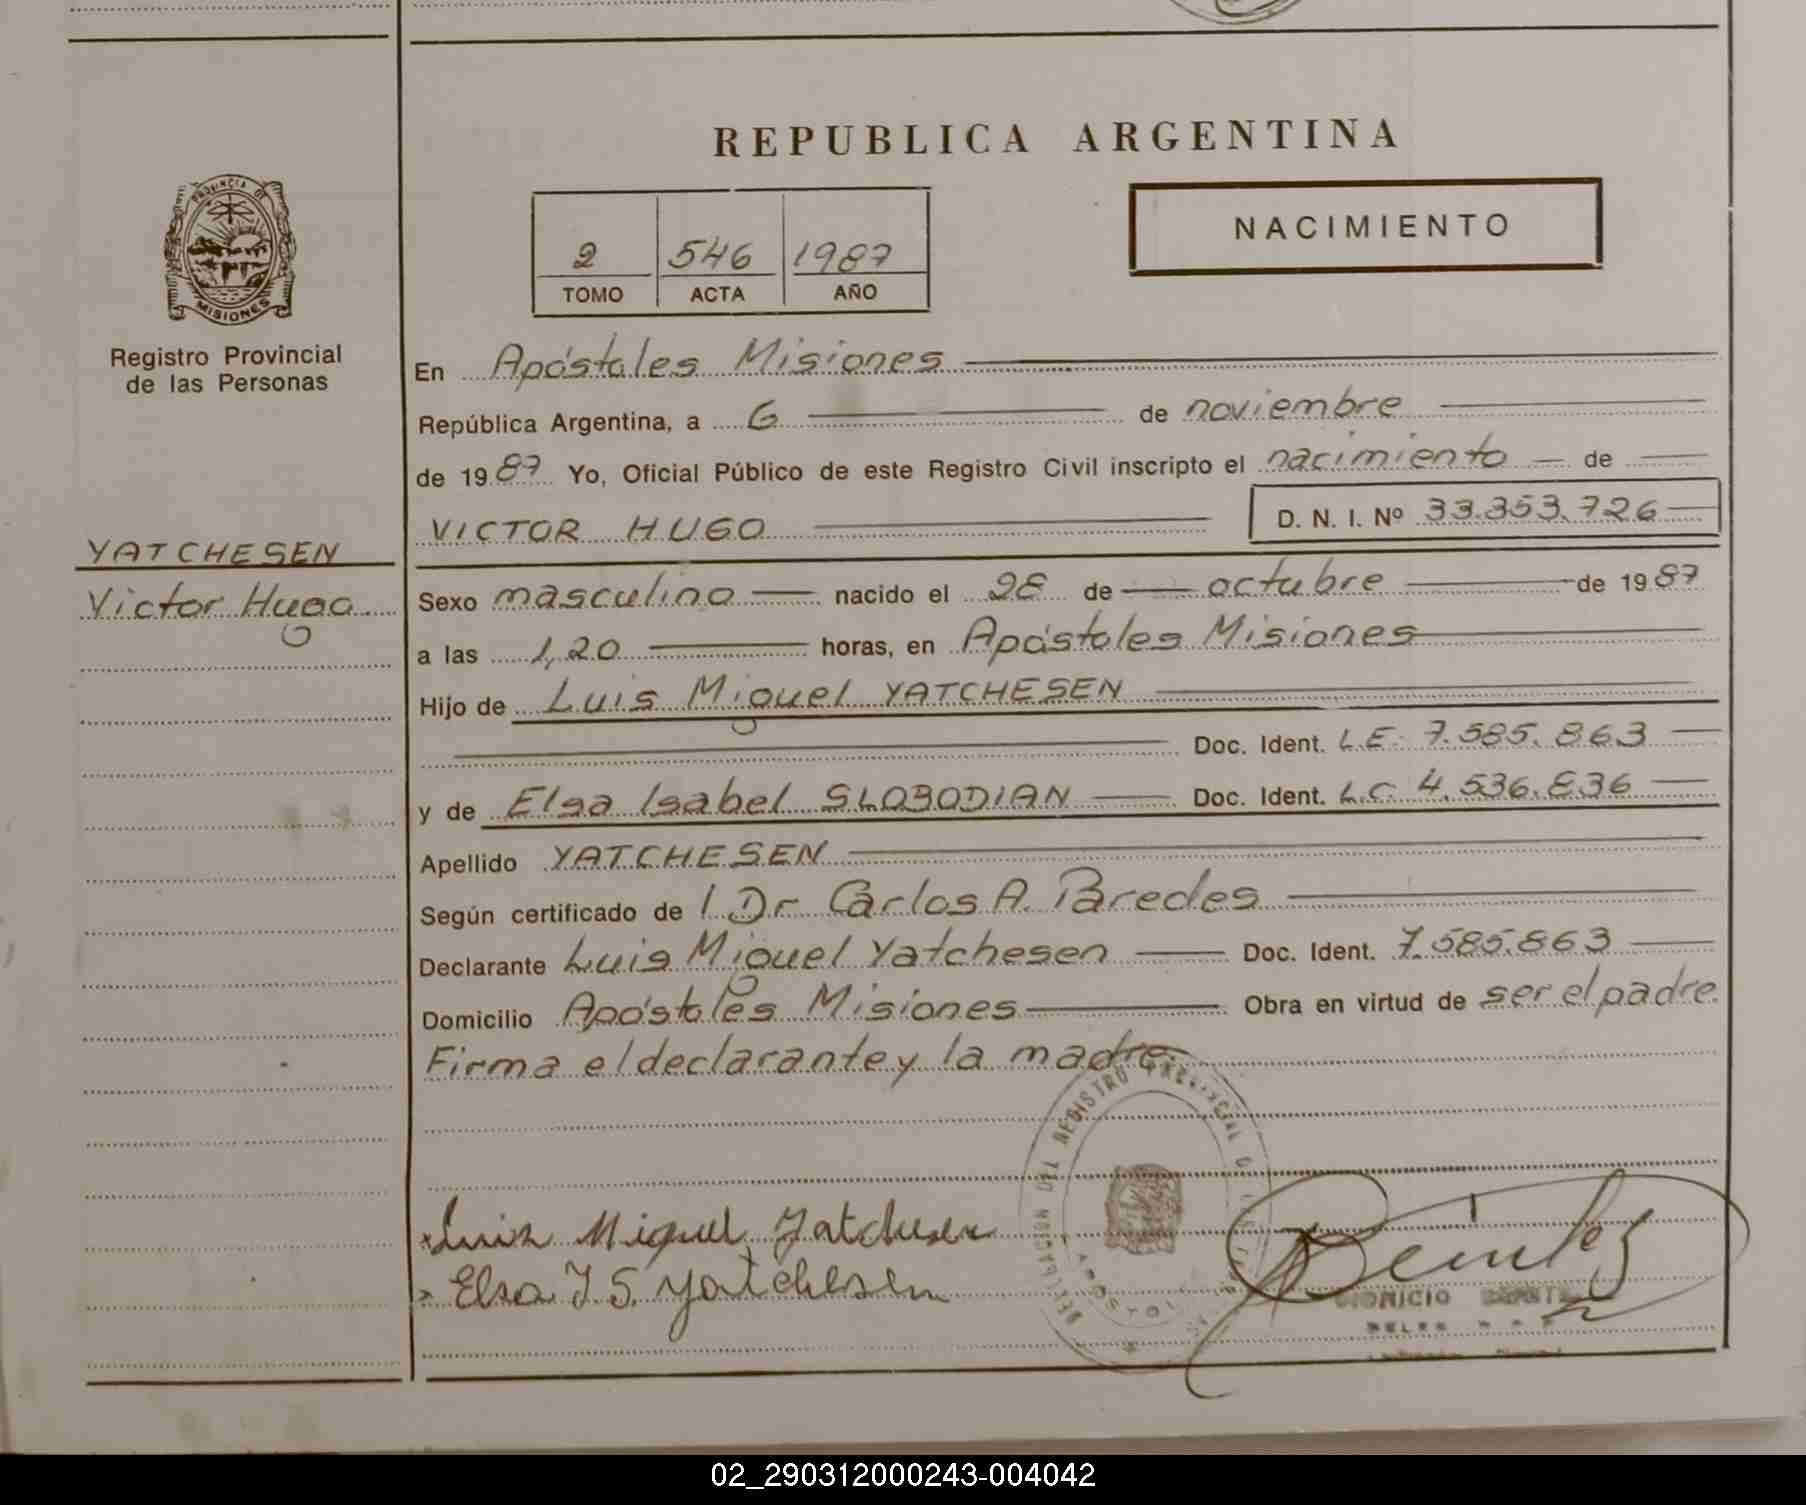 REPUBLICA ARGENTINA
PROVINCIA DE
MISIONES
Registro Provincial
de las Personas
YATCHESEN
Victor Hugo
2 546 1987
TOMO ACTA AÑO
NACIMIENTO
En Apóstoles Misiones
República Argentina, a 6 de noviembre
de 1987 Yo, Oficial Público de este Registro Civil inscripto el nacimiento de
VICTOR HUGO D. N. I. Nº 33.353.726
Sexo masculino nacido el 28 de octubre de 1987
a las 1,20 horas, en Apóstoles Misiones
Hijo de Luis Miguel YATCHESEN
Doc. Ident. L.E. 7.585.863
y de Elsa Isabel SLOBODIAN Doc. Ident. L.C. 4.536.836
Apellido YATCHESEN
Según certificado de l Dr Carlos A. Paredes
Declarante Luis Miguel Yatchesen Doc. Ident. 7.585.863
Domicilio Apóstoles Misiones Obra en virtud de ser el padre.
Firma el declarante y la madre.
DELEGACION DEL REGISTRO PROVINCIAL
Luis Miguel Yatchesen
Elsa I. S. Yatchesen
Benitez
DIONICIO
02_290312000243-004042